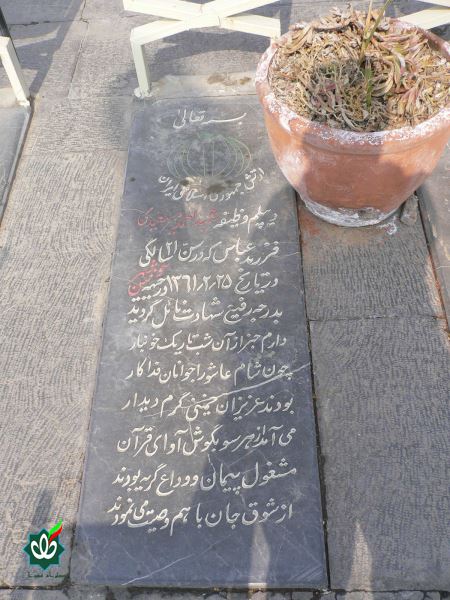 بسمه تعالی
ارتش جمهوری اسلامی ایران
دیپلم وظیفه شهید
فرزند عباس که در سن ۲۱ سالگی
در تاریخ ۱۳۶۱٫۲٫۲۵ در جبهه خونین
بدرجه رفیع شهادت نائل گردید
دارم خبر از آن شب تاریک خونبار
چون شام عاشورا جوانان فداکار
بودند عزیزان خمینی گرم دیدار
می آمد از هر سو بگوش آوای قرآن
مشغول پیمان و وداع گریه بودند
از شوق جان با هم وصیت می نمودند